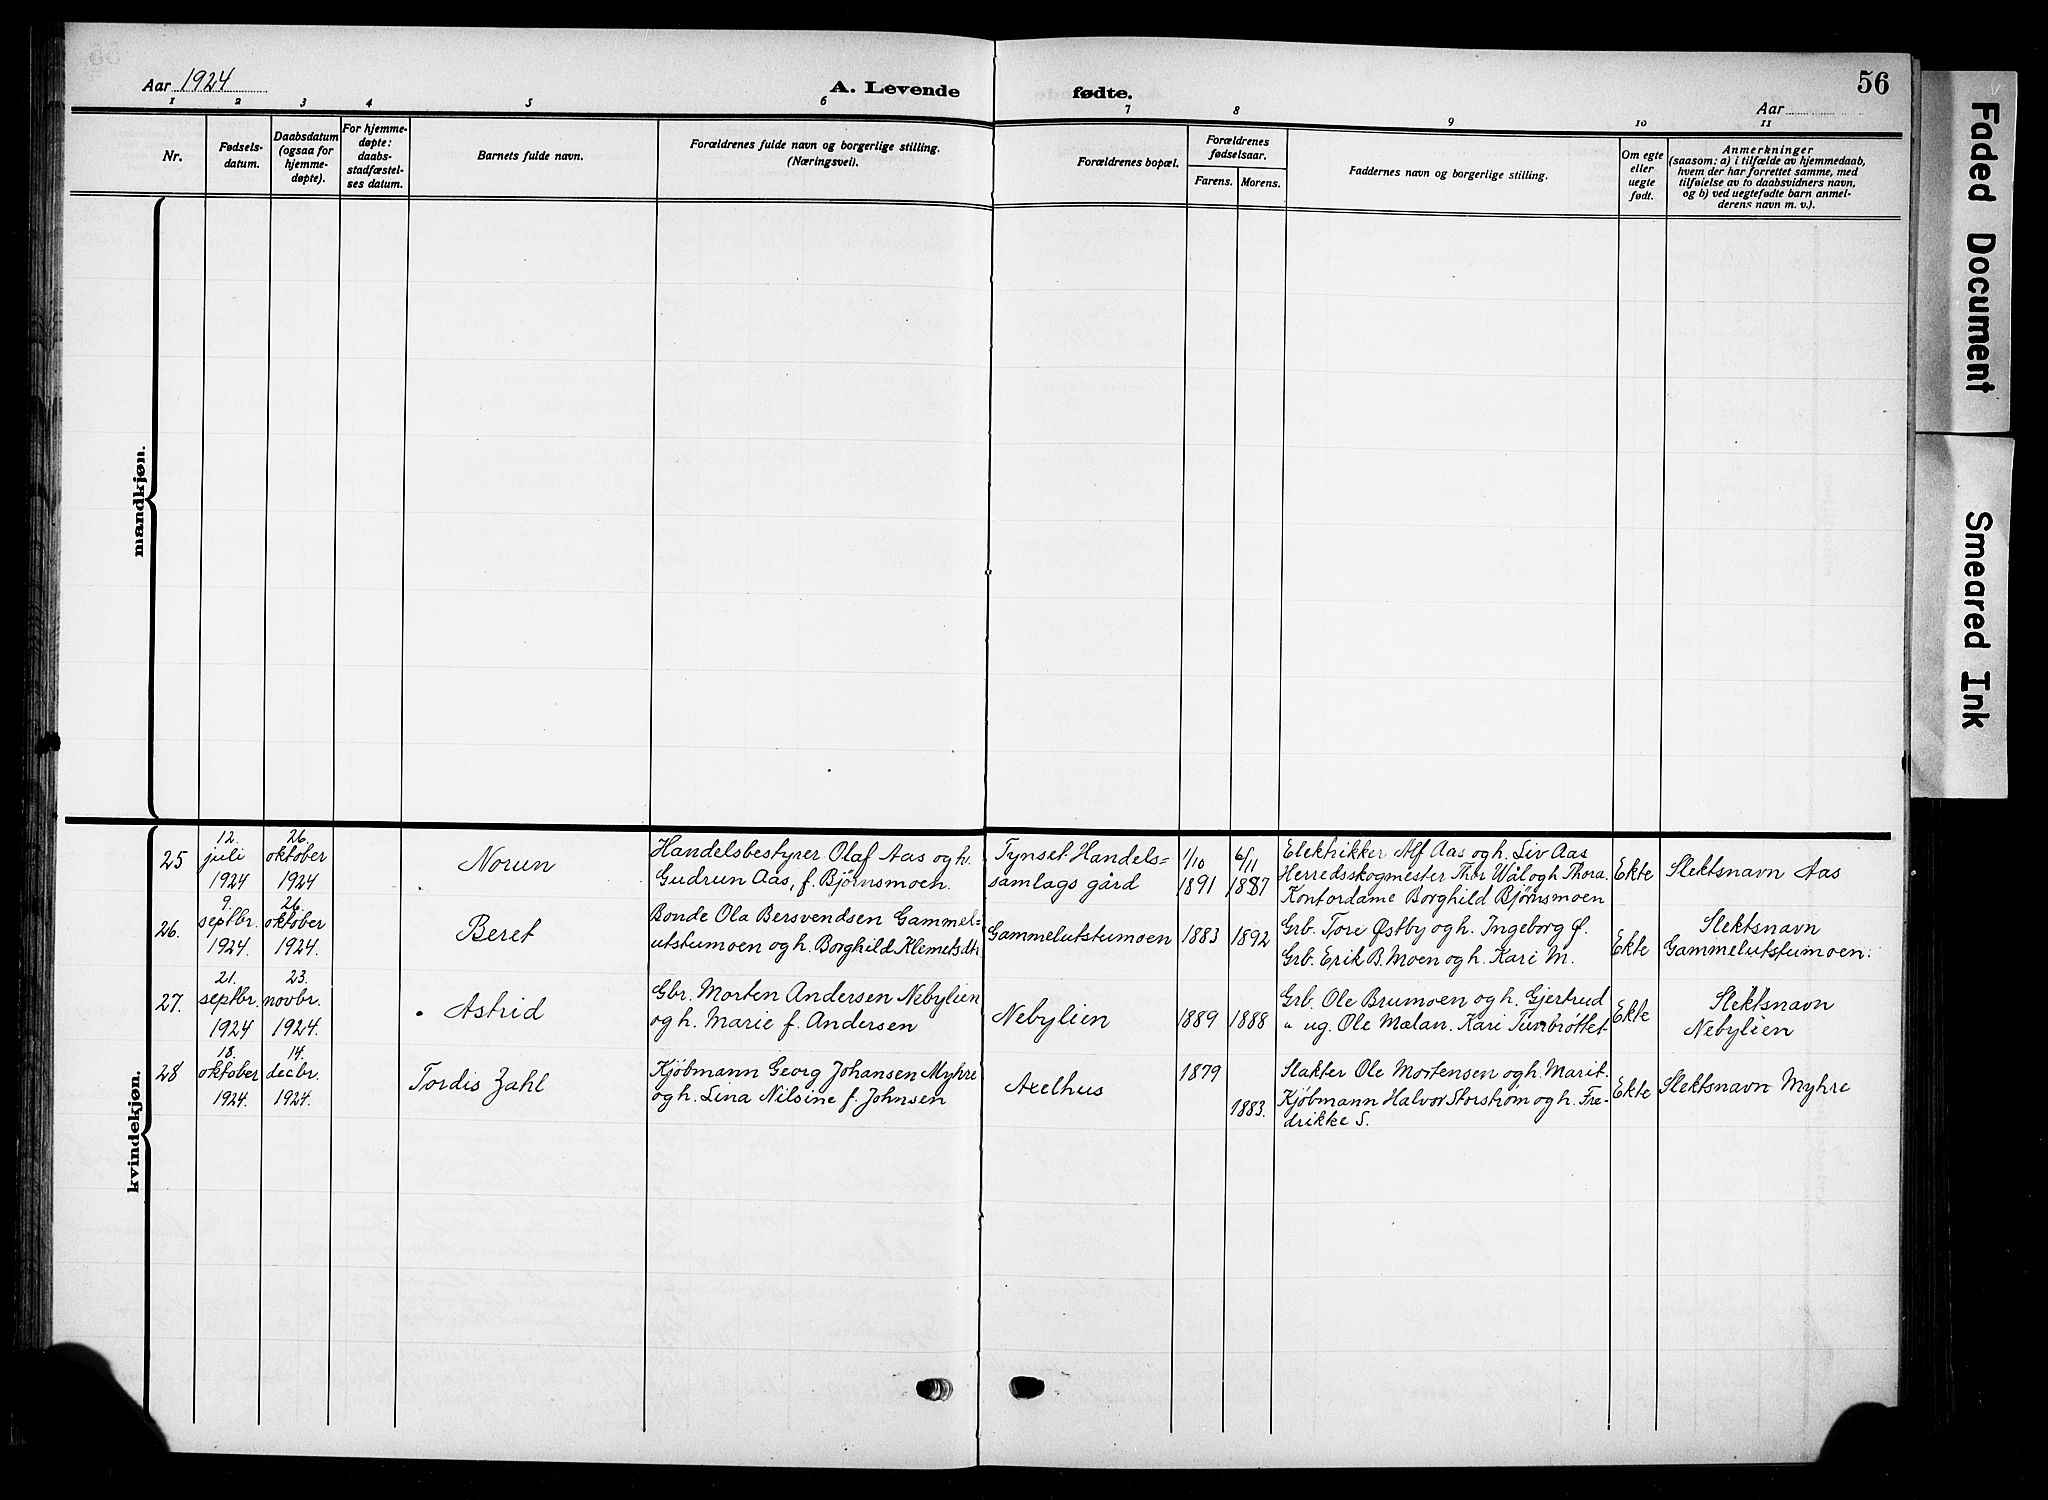 Aar 1924
A. Levende fødte.
56
Aar
1 2 3 4 5 6 7 8 9 10 11
Nr.
Fødsels-
datum.
Daabsdatum
(ogsaa for
hjemme-
døpte).
For hjemme-
døpte:
daabs-
stadfæstel-
ses datum.
Barnets fulde navn.
Forældrenes fulde navn og borgerlige stilling.
(Næringsvei).
Forældrenes bopæl.
Forældrenes
fødselsaar.
Farens. Morens.
Faddernes navn og borgerlige stilling.
Om egte
eller
uegte
født.
Anmerkninger
(saasom: a) i tilfælde av hjemmedaab,
hvem der har forrettet samme, med
tilføielse av to daabsvidners navn,
og b) ved uegtefødte barn anmel-
derens navn m. v.).
mandkjøn.
kvindekjøn.
25
12.
juli
1924
26.
oktober
1924
Norun
Handelsbestyrer Olaf Aas og h.
Gudrun Aas, f. Bjørnsmoen.
Tynset Handels=
samlags gård
1/10
1891
6/11
1887
Elektrikker Alf Aas og h. Liv Aas
Herredsskogmester Thor Wål og h Thora.
Kontordame Borghild Bjørnsmoen
Ekte
Slektsnavn Aas
26.
9.
septbr.
1924.
26.
oktober
1924.
Beret
Bonde Ola Bersvendsen Gammel=
utstumoen og h. Borghild Klemetsdtr
Gammelutstumoen
1883
1892
Grb. Tore Østby og h. Ingeborg Ø.
Grb. Erik B. Moen og h. Kari M.
Ekte
Slektsnavn
Gammelutstumoen.
27.
21.
septbr.
1924
23.
novbr.
1924.
Astrid
Gbr. Morten Andersen Nebylien
og h. Marie f. Andersen
Nebylien
1889
1888
Grb. Ole Brumoen og h. Gjertrud
" ug. Ole Mælan. Kari Tunbrøttet.
Ekte
Slektsnavn
Nebylien
28
18.
oktober
1924.
14.
decbr.
1924.
Tordis Zahl
Kjøbmann Georg Johansen Myhre
og h. Lina Nilsine f. Johnsen
Axelhus
1879
1883.
Slakter Ole Mortensen og h. Marit.
Kjøbmann Halvor Storstrøm og h. Fre-
drikke S.
Ekte
Slektsnavn Myhre
Faded Document
Smeared Ink